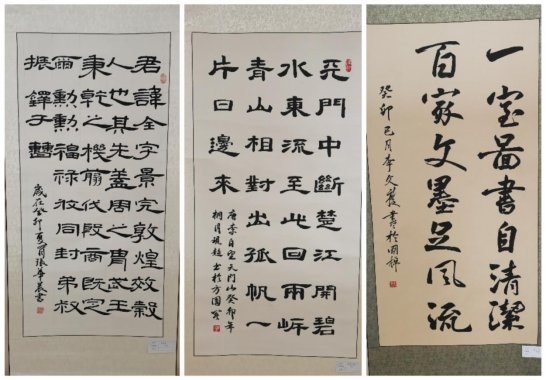 君諱全字景完敦煌效穀
人也其先蓋周之胄武王
秉乾之機翦伐殷商既定
爾勳勳福祿攸同封弟叔
振鐸于曹
歲在癸卯夏月張華晨書
天門中斷楚江開碧
水東流至此回兩岸
青山相對出孤帆一
片日邊來
唐李白望天門山癸卯年
桐月 書於方圓
一室圖書自清潔
百家文墨足風流
癸卯巳月李文 書於